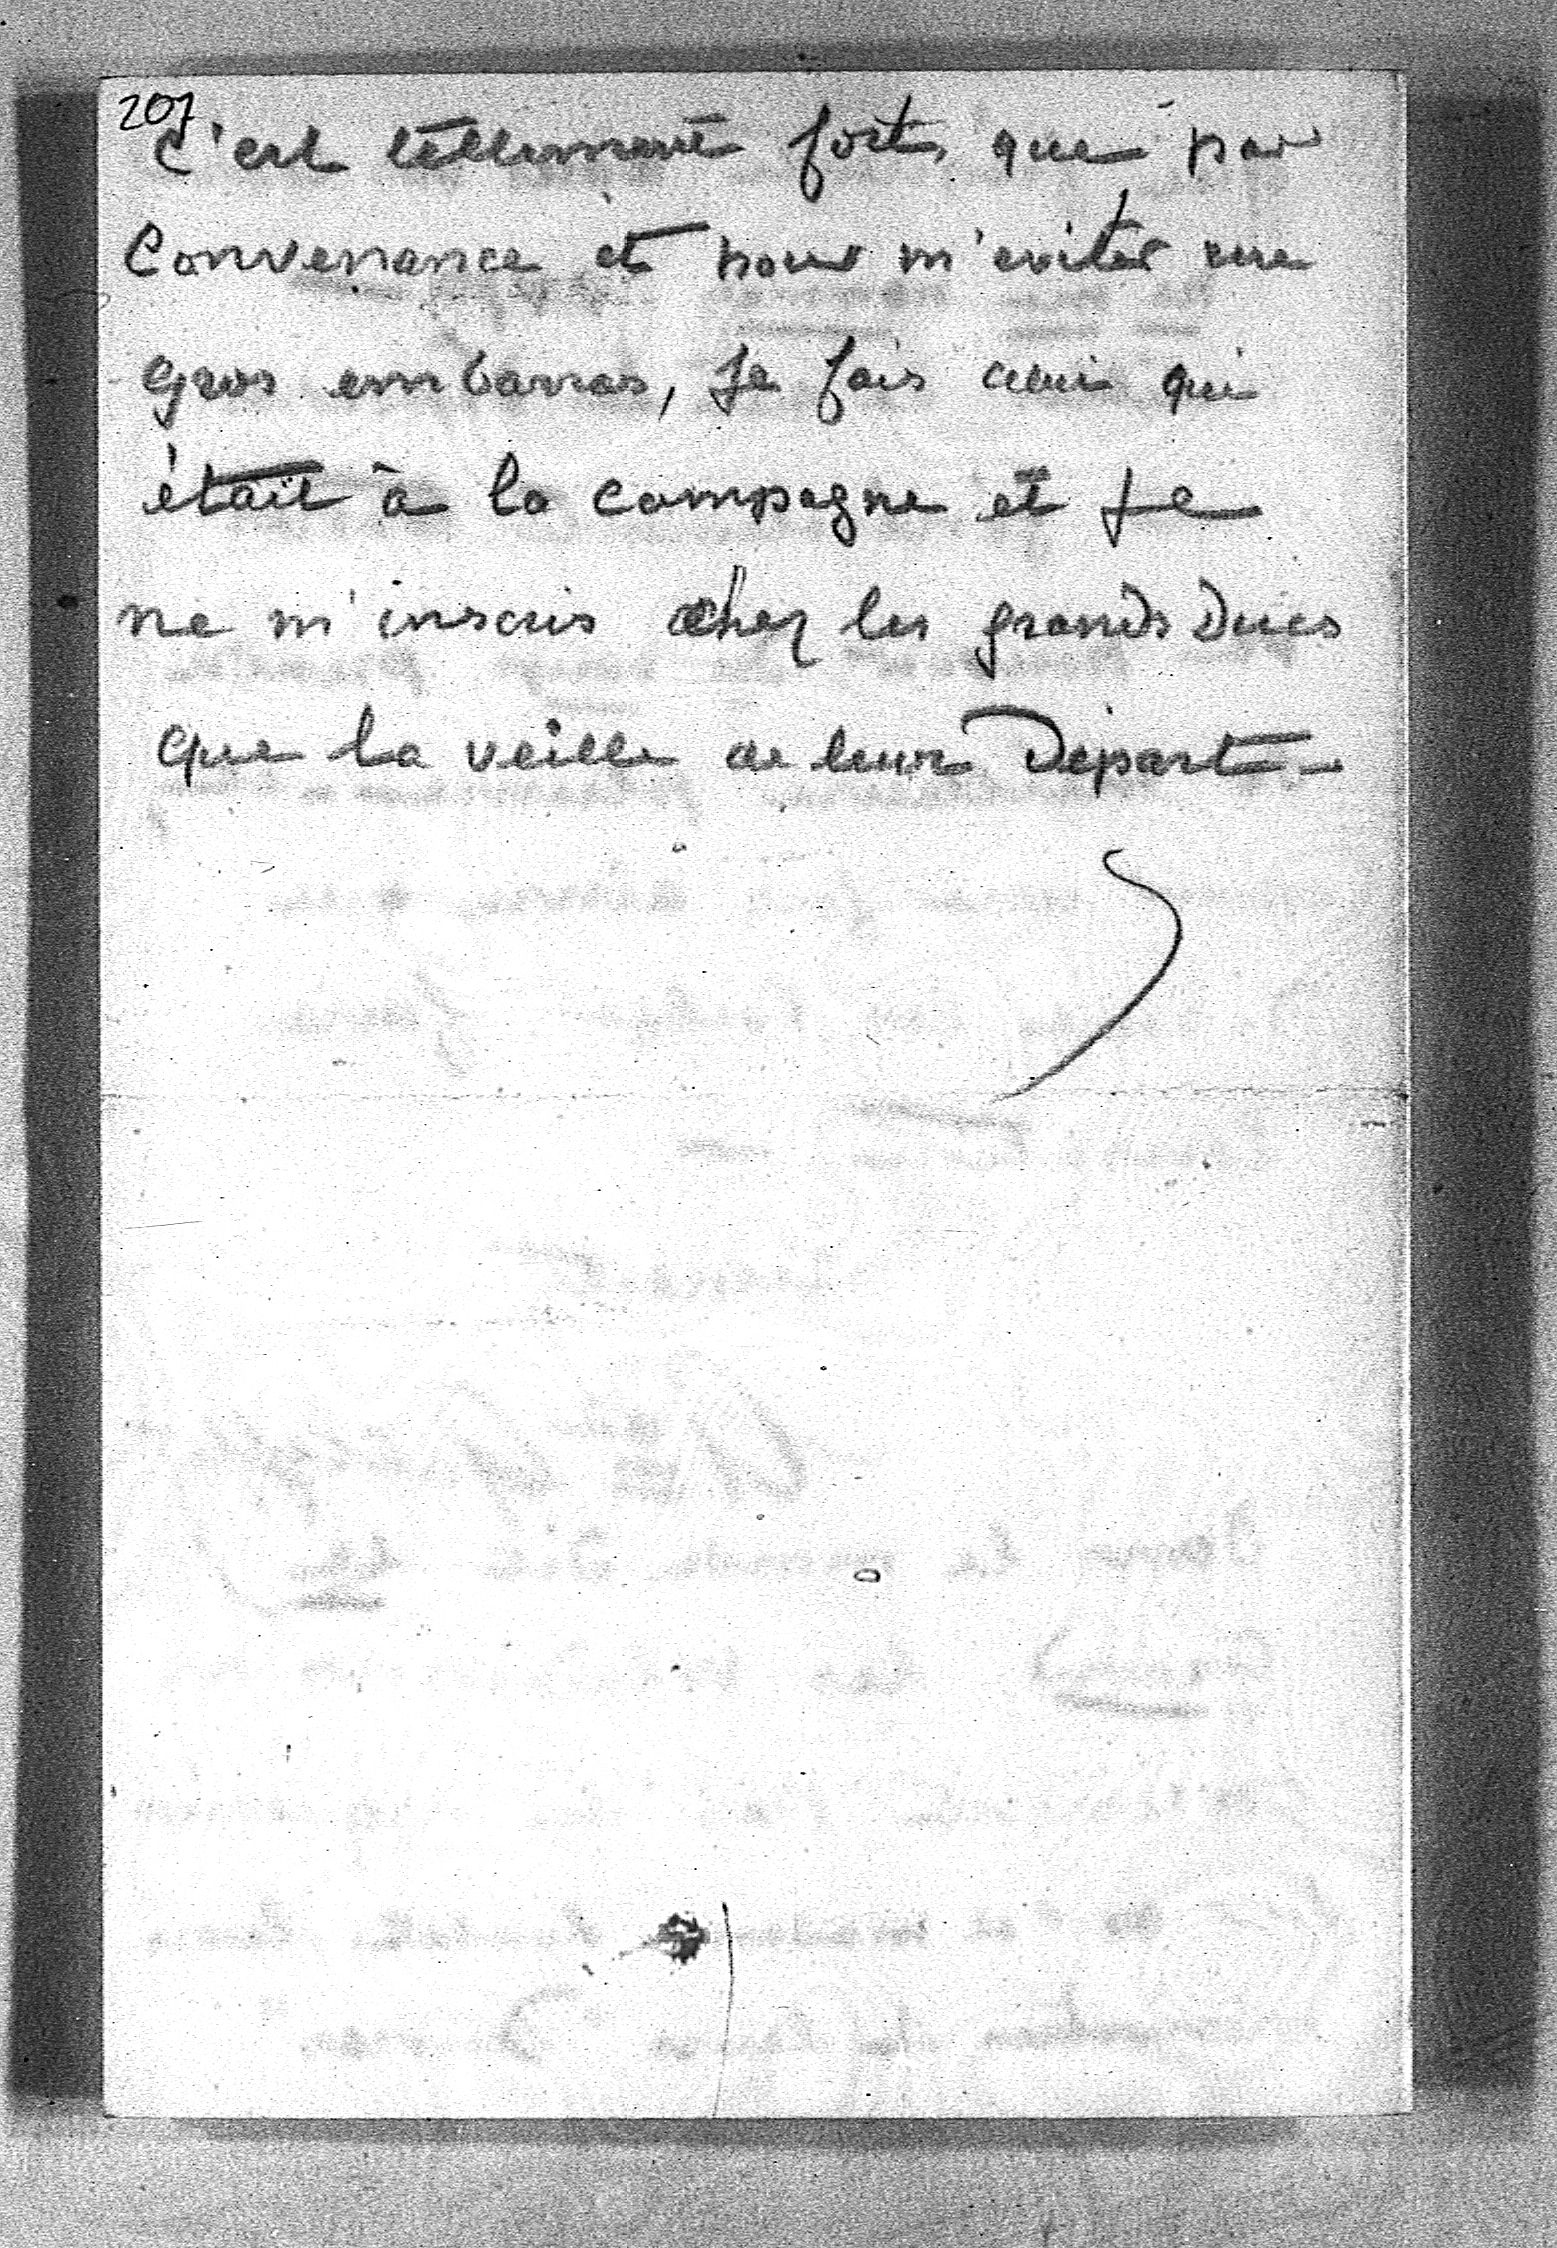 207
C'est tellement fort, que par
Convenance et pour m'eviter un
gros embarras, Je fais celui qui
était à la campagne et Je
ne m'inscris chez les grands Ducs
que la veille de leur Départ -